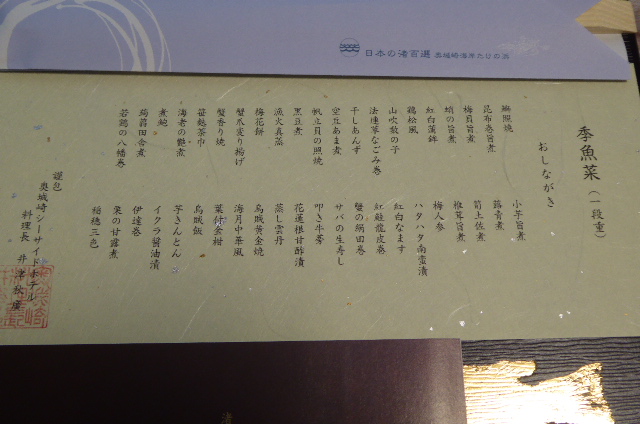 日本の渚百選 奥城崎海岸たけの浜
季魚菜(一段重)
おしながき
鰤照焼
昆布巻旨煮
梅貝旨煮
蛸の旨煮
紅白蒲鉾
鶏松風
山吹数の子
法連草なごみ巻
干しあんず
空豆あま煮
帆立貝の照焼
黒豆煮
漁火真蒸
梅花餅
蟹爪変り揚げ
蟹香り焼
笹麩茶巾
海老の艶煮
煮鮑
蒟蒻田舎煮
若鶏の八幡巻
小芋旨煮
蕗青煮
筍土佐煮
椎茸旨煮
梅人参
ハタハタ南蛮漬
紅白なます
紅鮭龍皮巻
蟹の絹田巻
サバの生寿し
叩き牛蒡
花蓮根甘酢漬
蒸し雲丹
烏賊黄金焼
海月中華風
葉付金柑
烏賊飯
芋きんとん
イクラ醤油漬
伊達巻
栗の甘露煮
福徳三色
謹包
奥城崎シーサイドホテル
料理長 井津秋